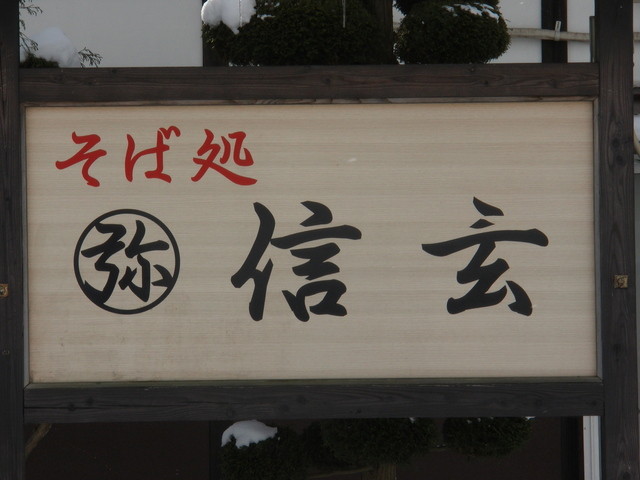 そば処
弥 信玄